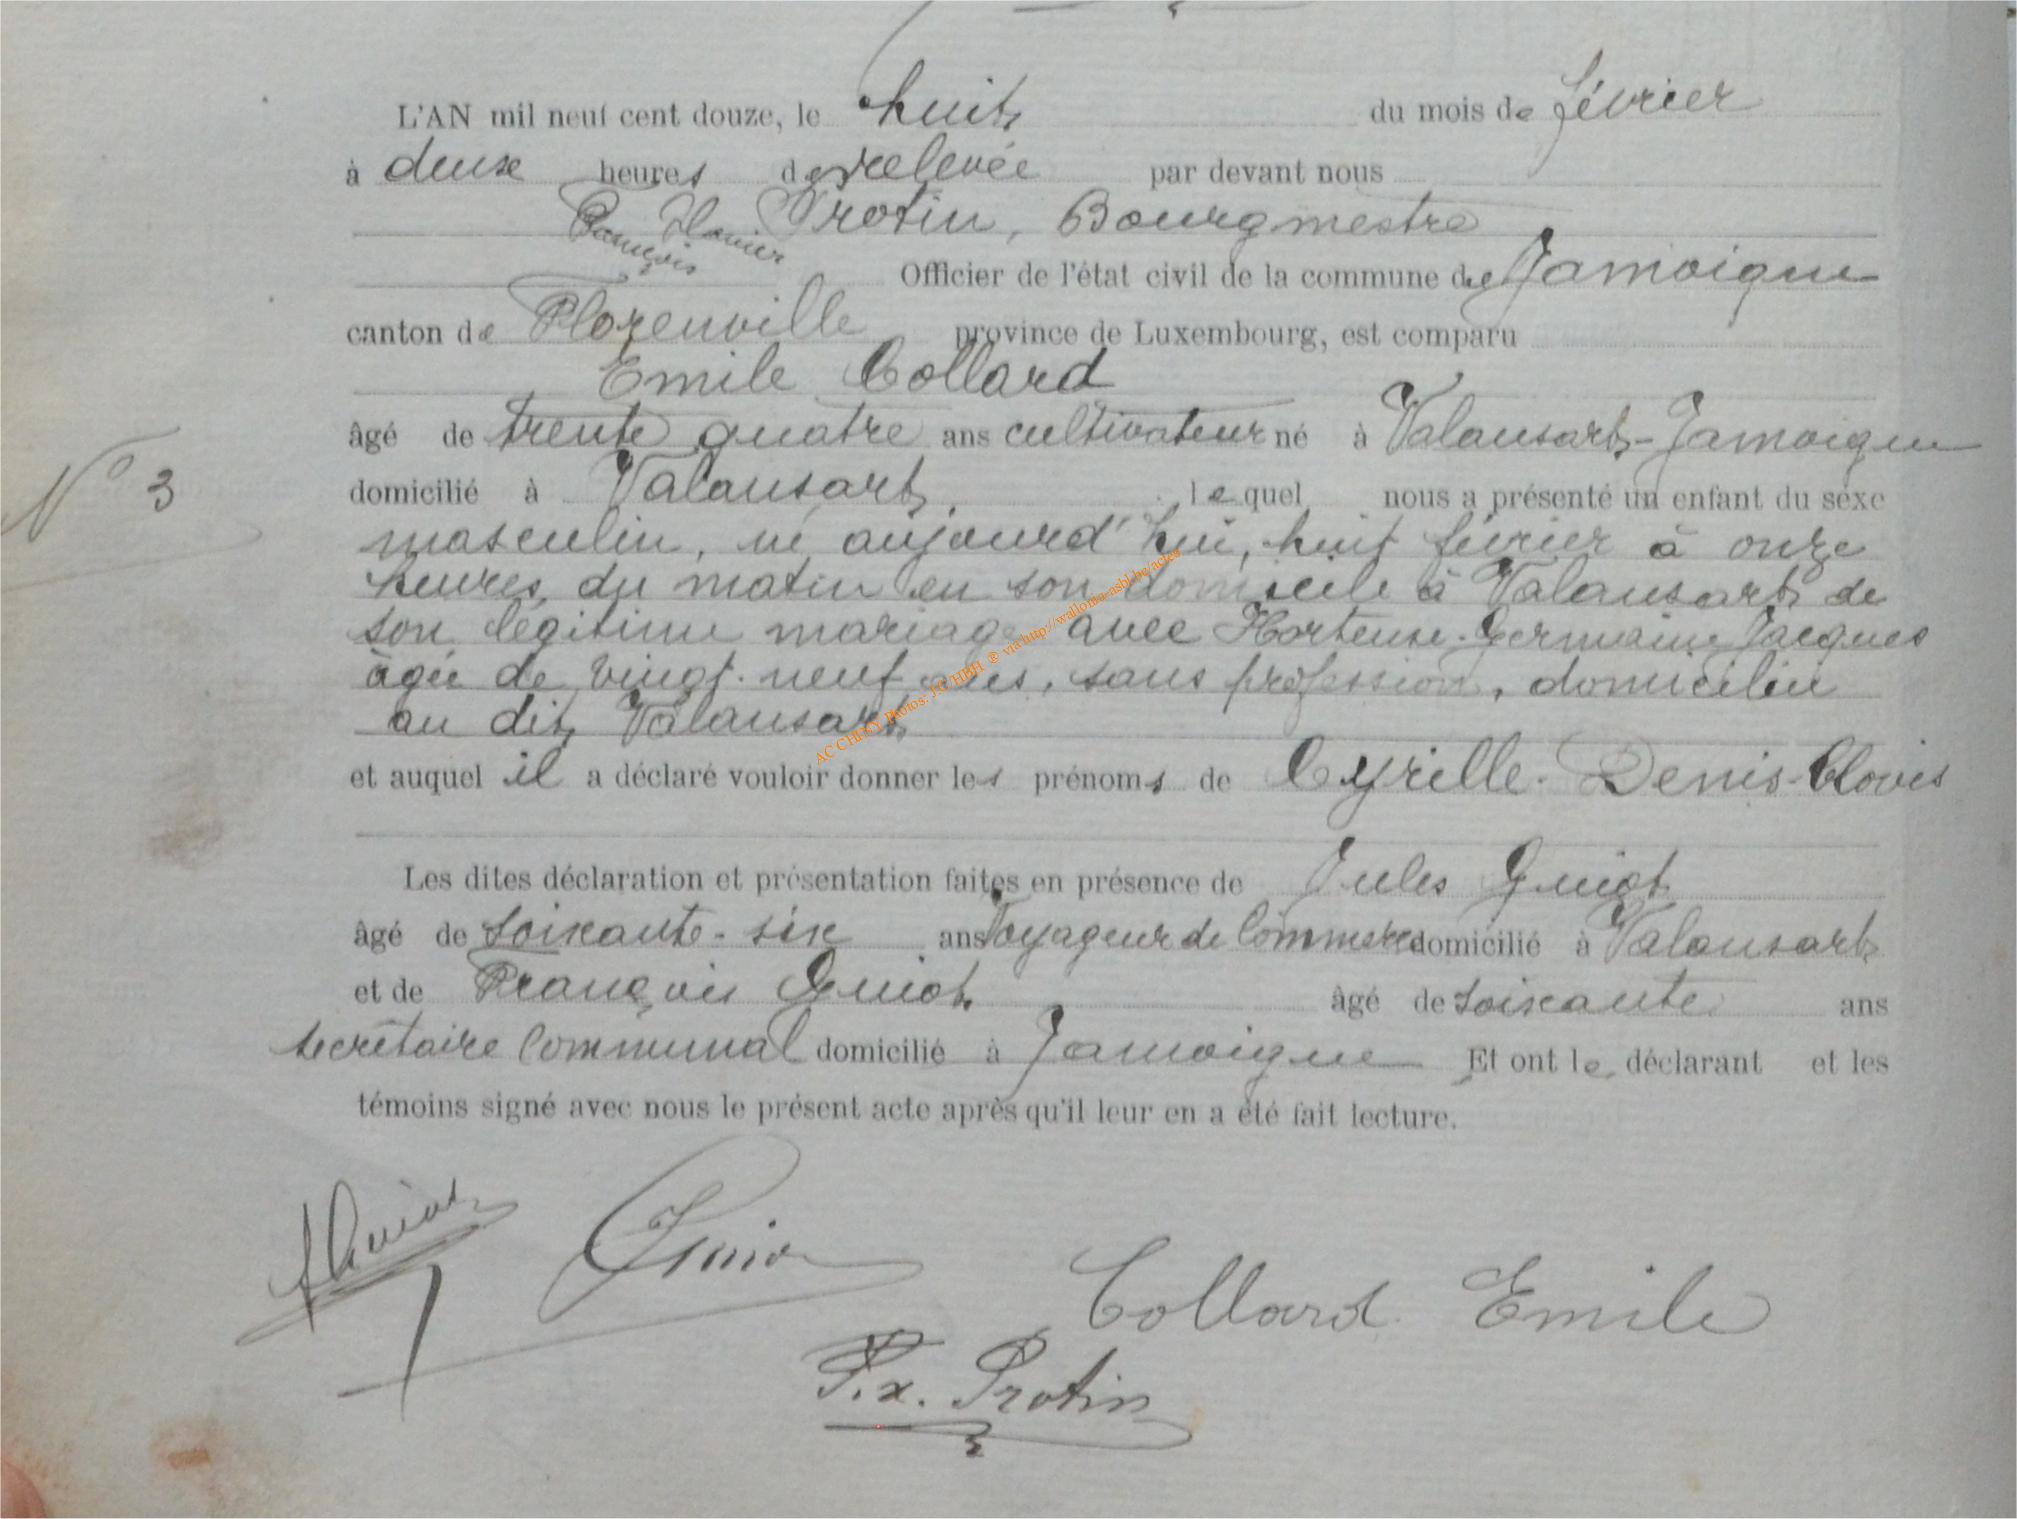 L'AN mil neuf cent douze, le huit du mois de février
à deux heures de relevée par devant nous
François Xavier Protin, Bourgmestre
Officier de l'état civil de la commune de Jamoigne
canton de Florenville province de Luxembourg, est comparu
Emile Collard
âgé de trente quatre ans cultivateur né à Valansart-Jamoigne
N° 3
domicilié à Valansart, lequel nous a présenté un enfant du sexe
masculin, né aujourd'hui, huit février à onze
heures du matin en son domicile à Valansart de
son légitime mariage avec Hortense-Germaine Jacques
âgée de vingt-neuf ans, sans profession, domiciliée
au dit Valansart
et auquel il a déclaré vouloir donner les prénoms de Cyrille-Denis-Clovis
Les dites déclaration et présentation faites en présence de Jules Guiot
âgé de soixante-six ans Voyageur de Commerce domicilié à Valansart
et de François Guiot âgé de soixante ans
secrétaire communal domicilié à Jamoigne Et ont le déclarant et les
témoins signé avec nous le présent acte après qu'il leur en a été fait lecture.
f Guiot
J Guiot
Collard Emile
F. x. Protin
AC CHINY Photos: J.C HBH ® via http://wallonia-asbl.be/actes